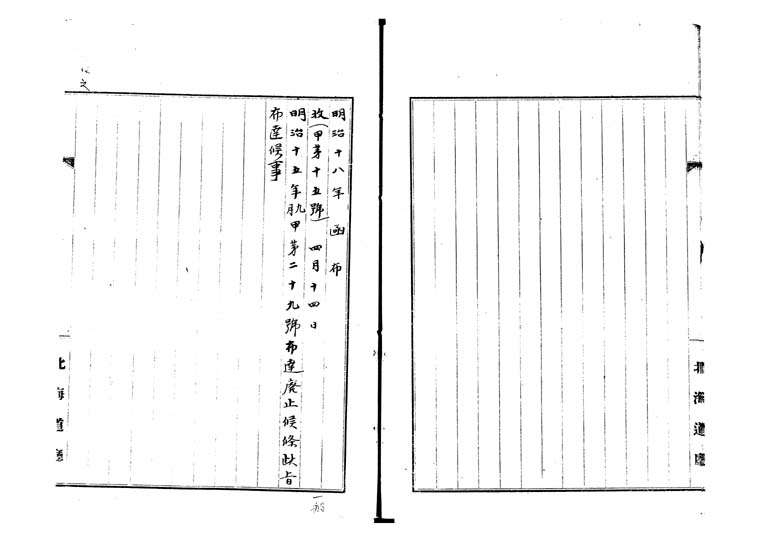 北海道廳
明治十八年函布
放(甲第十五號) 四月十四日
明治十五年九月甲第二十九號布達廃止候條此旨
布達候事
北海道廳